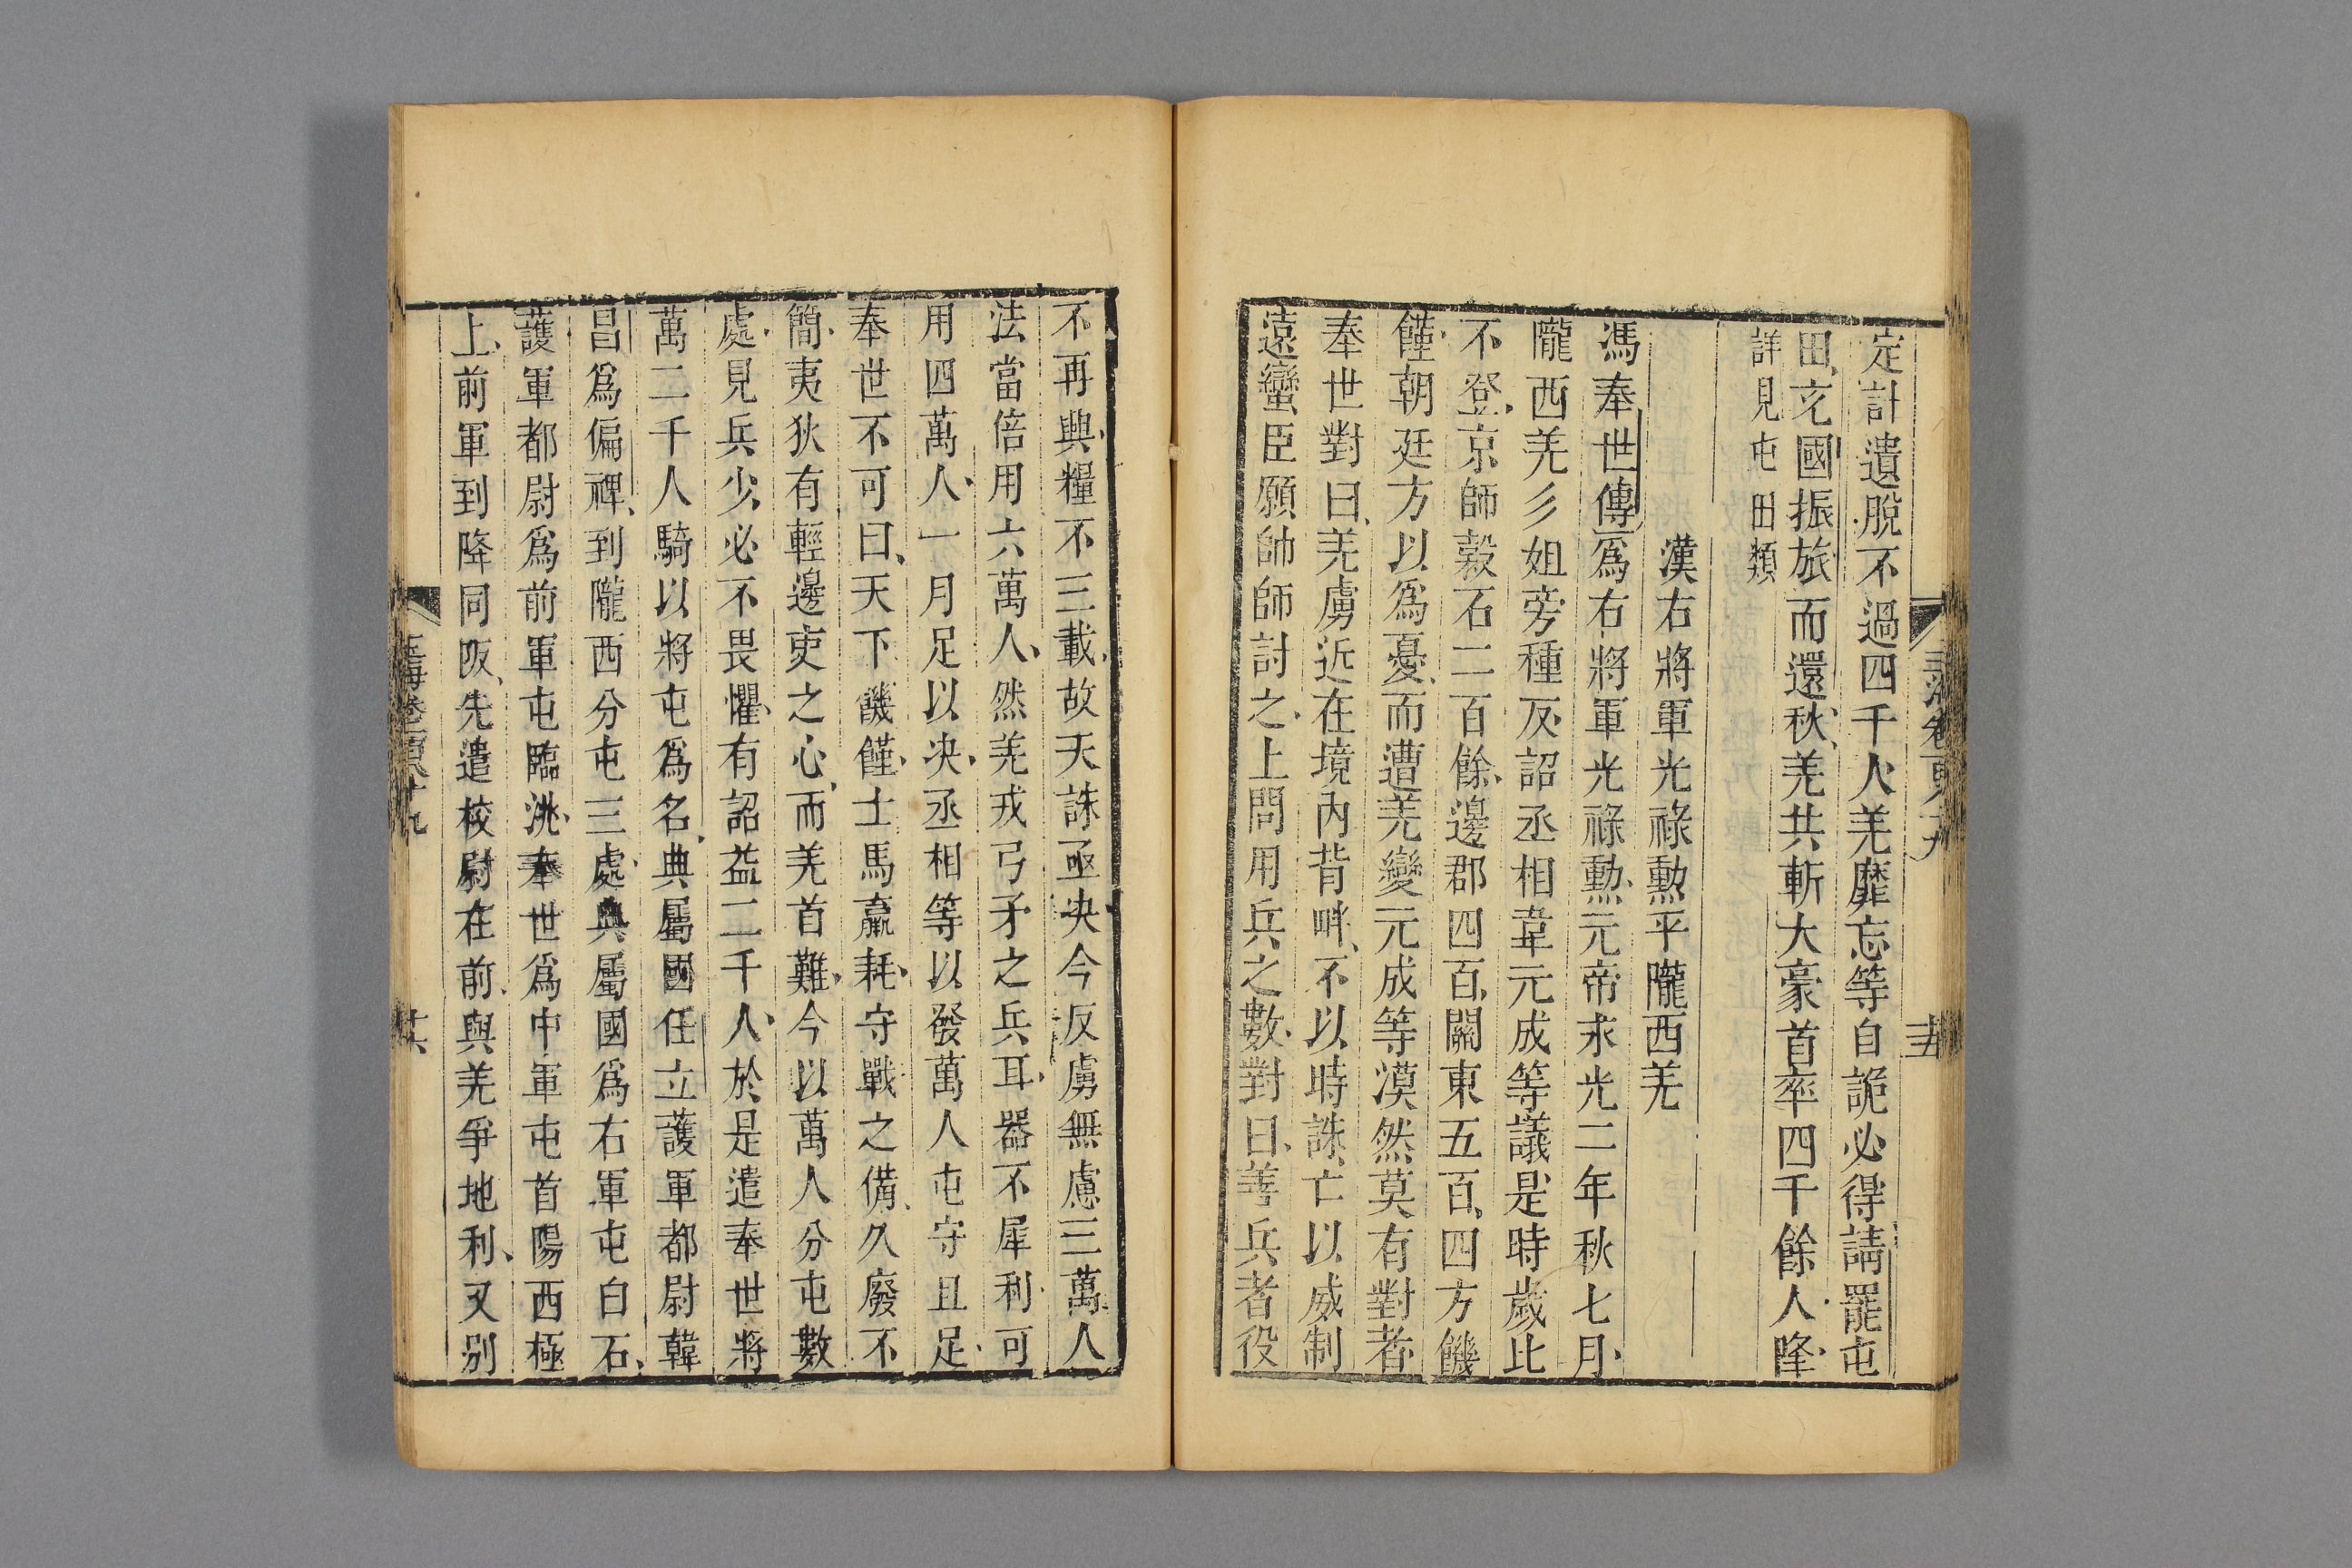 定計遺脫不過四千人羌靡忘等自詭必得請罷屯
田充國振旅而還秋羌共斬大豪首率四千餘人降
詳見屯田類
漢右將軍光祿勲平隴西羌
馮奉世傳爲右將軍光祿勲元帝永光二年秋七月
隴西羌彡姐旁種反詔丞相韋元成等議是時歲比
不登京師穀石二百餘邊郡四百關東五百四方饑
饉朝廷方以爲憂而遭羌變元成等漠然莫有對者
奉世對曰羌虜近在境內背畔不以時誅亡以威制
遠蠻臣願帥師討之上問用兵之數對曰善兵者役
不再興糧不三載故天誅亟决今反虜無慮三萬人
法當倍用六萬人然羌戎弓矛之兵耳器不犀利可
用四萬人一月足以决丞相等以發萬人屯守且足
奉世不可曰天下饑饉士馬羸耗守戰之備久廢不
簡夷狄有輕邊吏之心而羌首難今以萬人分屯數
處見兵少必不畏懼有詔益二千人於是遣奉世將
萬二千人騎以將屯爲名典屬國任立護軍都尉韓
昌爲偏裨到隴西分屯三處典屬國爲右軍屯白石
護軍都尉爲前軍屯臨洮奉世爲中軍屯首陽西極
上前軍到降同阪先遣校尉在前與羌爭地利又別
玉海卷一百八十九
廿六